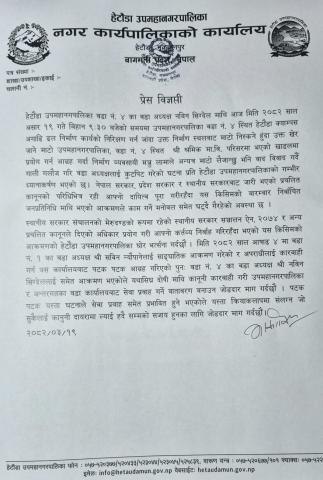 हेटौंडा उपमहानगरपालिका
नगर कार्यपालिकाको कार्यालय
हेटौंडा, मकवानपुर
बागमती प्रदेश, नेपाल
पत्र संख्या :-
शाखा/उपशाखा/इकाई :-
चलानी नं. :-
प्रेस विज्ञप्ती
हेटौंडा उपमहानगरपालिका वडा नं. ४ का वडा अध्यक्ष नविन सिग्देल माथि आज मिति २०८२ साल
असार १९ गते बिहान ९:३० बजेको समयमा उपमहानगरपालिका वडा नं. ४ स्थित हेटौंडा क्याम्पस
अगाडि ढल निर्माण कार्यको निरिक्षण गर्न जाँदा उक्त निर्माण स्थलबाट माटो निस्कने हुंदा उक्त खेर
जाने माटो उपमहानगरपालिका, वडा नं. ४ स्थित श्री श्रमिक मा.वि. परिसरमा भएको खाडलमा
प्रयोग गर्न आग्रह गर्दा निर्माण व्यवसायी मञ्जु लामाले अन्यत्र माटो लैजान्छु भनि वाद विवाद गर्दै
थाली गलौज गरि वडा अध्यक्षलाई कुटपिट गरेको घटना प्रति हेटौंडा उपमहानगरपालिकाको गम्भीर
ध्यानाकर्षण भएको छ। नेपाल सरकार, प्रदेश सरकार र स्थानीय सरकारबाट जारी भएको प्रचलित
कानूनको परिधिभित्र रही आफ्नो दायित्व पूरा गरीरहँदा यस किसिमको बारम्बार निर्वाचित
जनप्रतिनिधि माथि भएको आक्रमणले काम गर्ने मनोबल समेत घट्दै गैरहेको अवस्था छ ।
स्थानीय सरकार संचालनको मेरुदण्डको रूपमा रहेको स्थानीय सरकार सञ्चालन ऐन, २०७४ र अन्य
प्रचलित कानूनले दिएको अधिकार प्रयोग गरी आफ्नो कर्तव्य निर्वाह गरिरहँदा भएको यस किसिमको
आक्रमणको हेटौंडा उपमहानगरपालिका घोर भर्त्सना गर्दछौं । मिति २०८२ साल आषाढ ४ मा वडा
नं. १ का वडा अध्यक्ष श्री सविन न्यौपानेलाई सांङ्घातिक आक्रमण गरेको र अपराधीलाई कारबाही
गर्न यस कार्यालयबाट पटक पटक आग्रह गरिएको पुनः वडा नं. ४ का वडा अध्यक्ष श्री नविन
सिग्देललाई समेत आक्रमण भएकोले यथासिघ्र दोषी माथि कानूनी कारबाही गरी उपमहानगरपालिका
र अन्तरगतका वडा कार्यालयबाट सेवा प्रवाह गर्ने वातावरण बनाउन जोडदार माग गर्दछौं । पटक
पटक यस्ता घटनाले सेवा प्रवाह समेत प्रभावित हुने भएकोले यस्ता क्रियाकलापमा संलग्न जो
सुकैलाई कानूनी दायरामा ल्याई हदै सम्मको सजाय हुनका लागि जोडदार माग गर्दछौं।
२०८२/०३/१९
हेटौंडा उपमहानगरपालिका फोन :
इमेल: info@hetaudamun.gov.np वेबसाईट: hetaudamun.gov.np